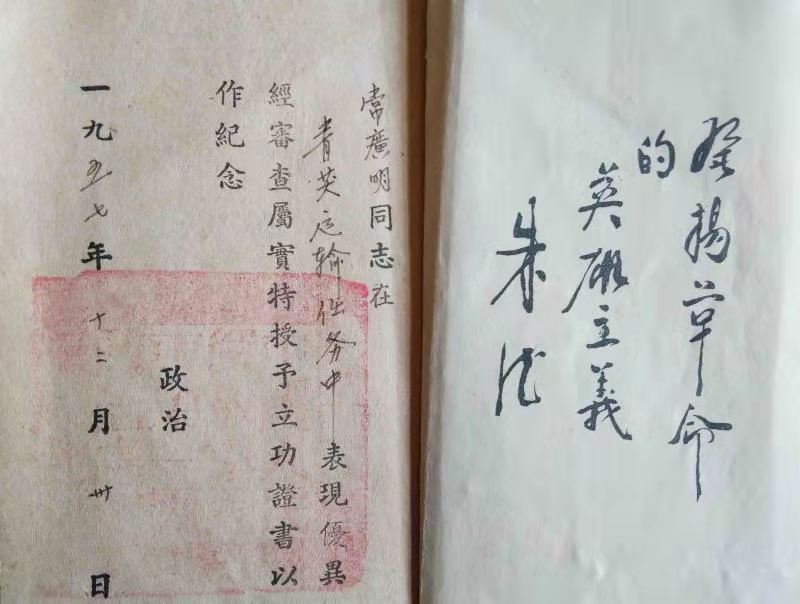 发揚革命
的
英雄主義
朱德
常廣明同志在
青运輸任务中表現優異
經審查屬實特授予立功證書以
作紀念
政治
一九五七年十二月卅日